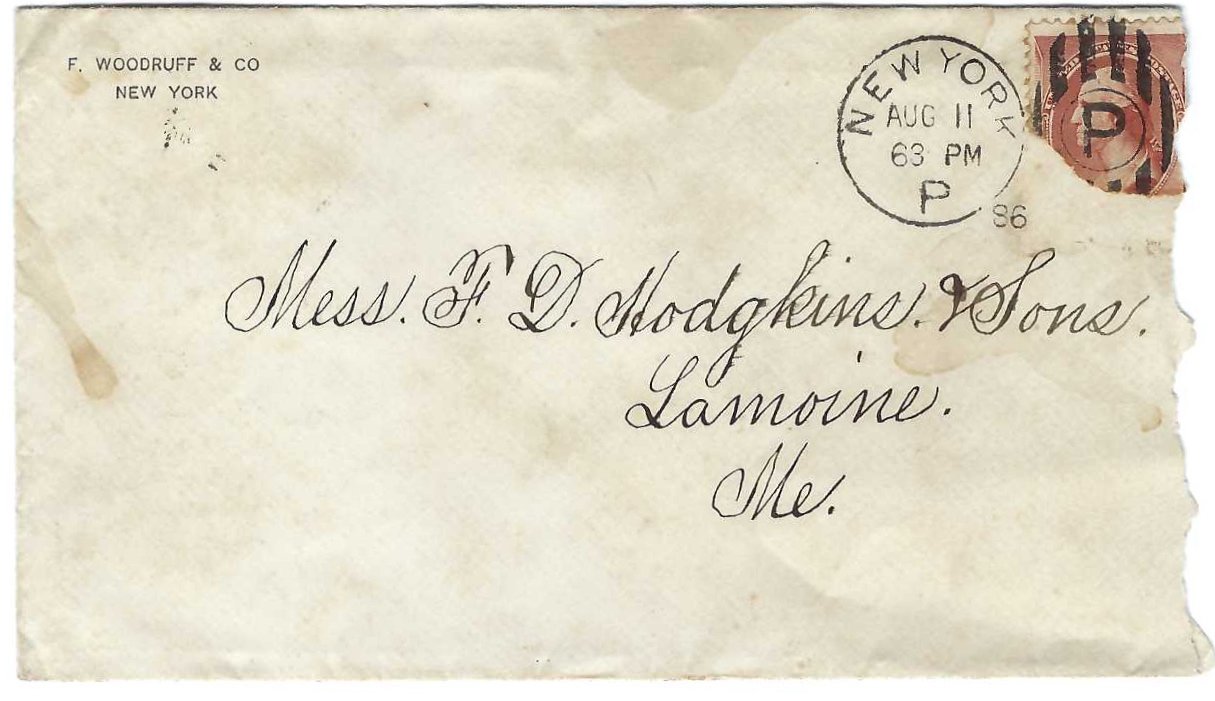 F. WOODRUFF & CO
NEW YORK
NEW YORK
AUG 11
63 PM
P
86
P
Mess. F. D. Hodgkins. & Sons.
Lamoine.
Me.